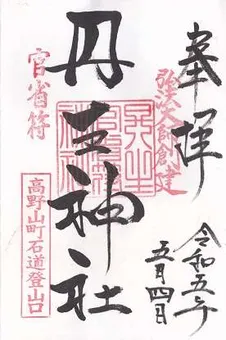 奉拝
弘法大師創建
令和五年
五月四日
丹生神社
官省符
高野山町石道登山口